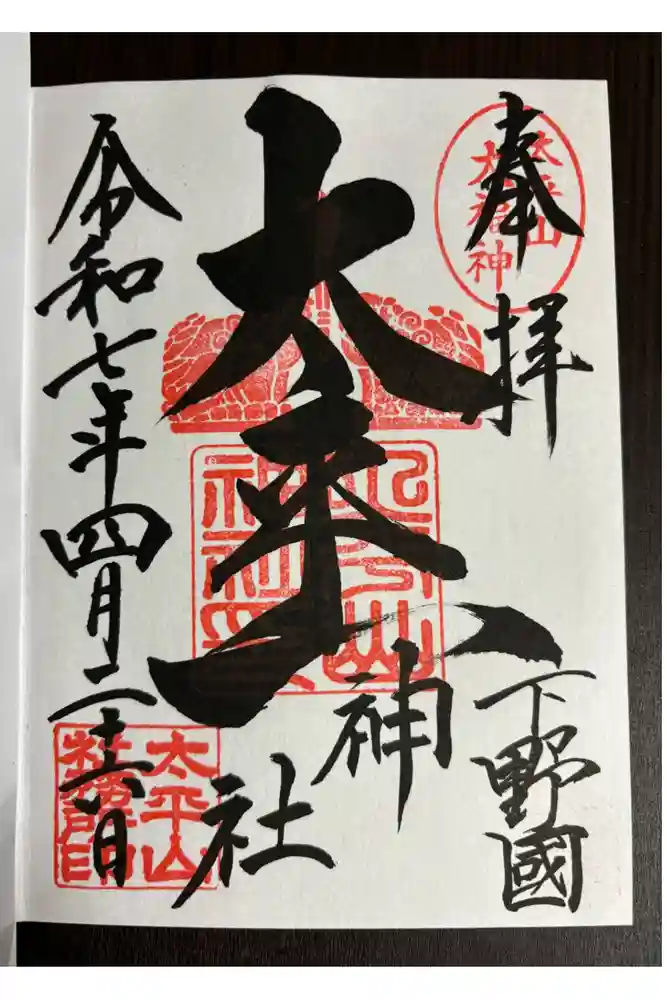 奉拝
下野國
太平山
神社
令和七年四月二十六日
太平山
大福神
太平山
神社之印
太平山
社務所印